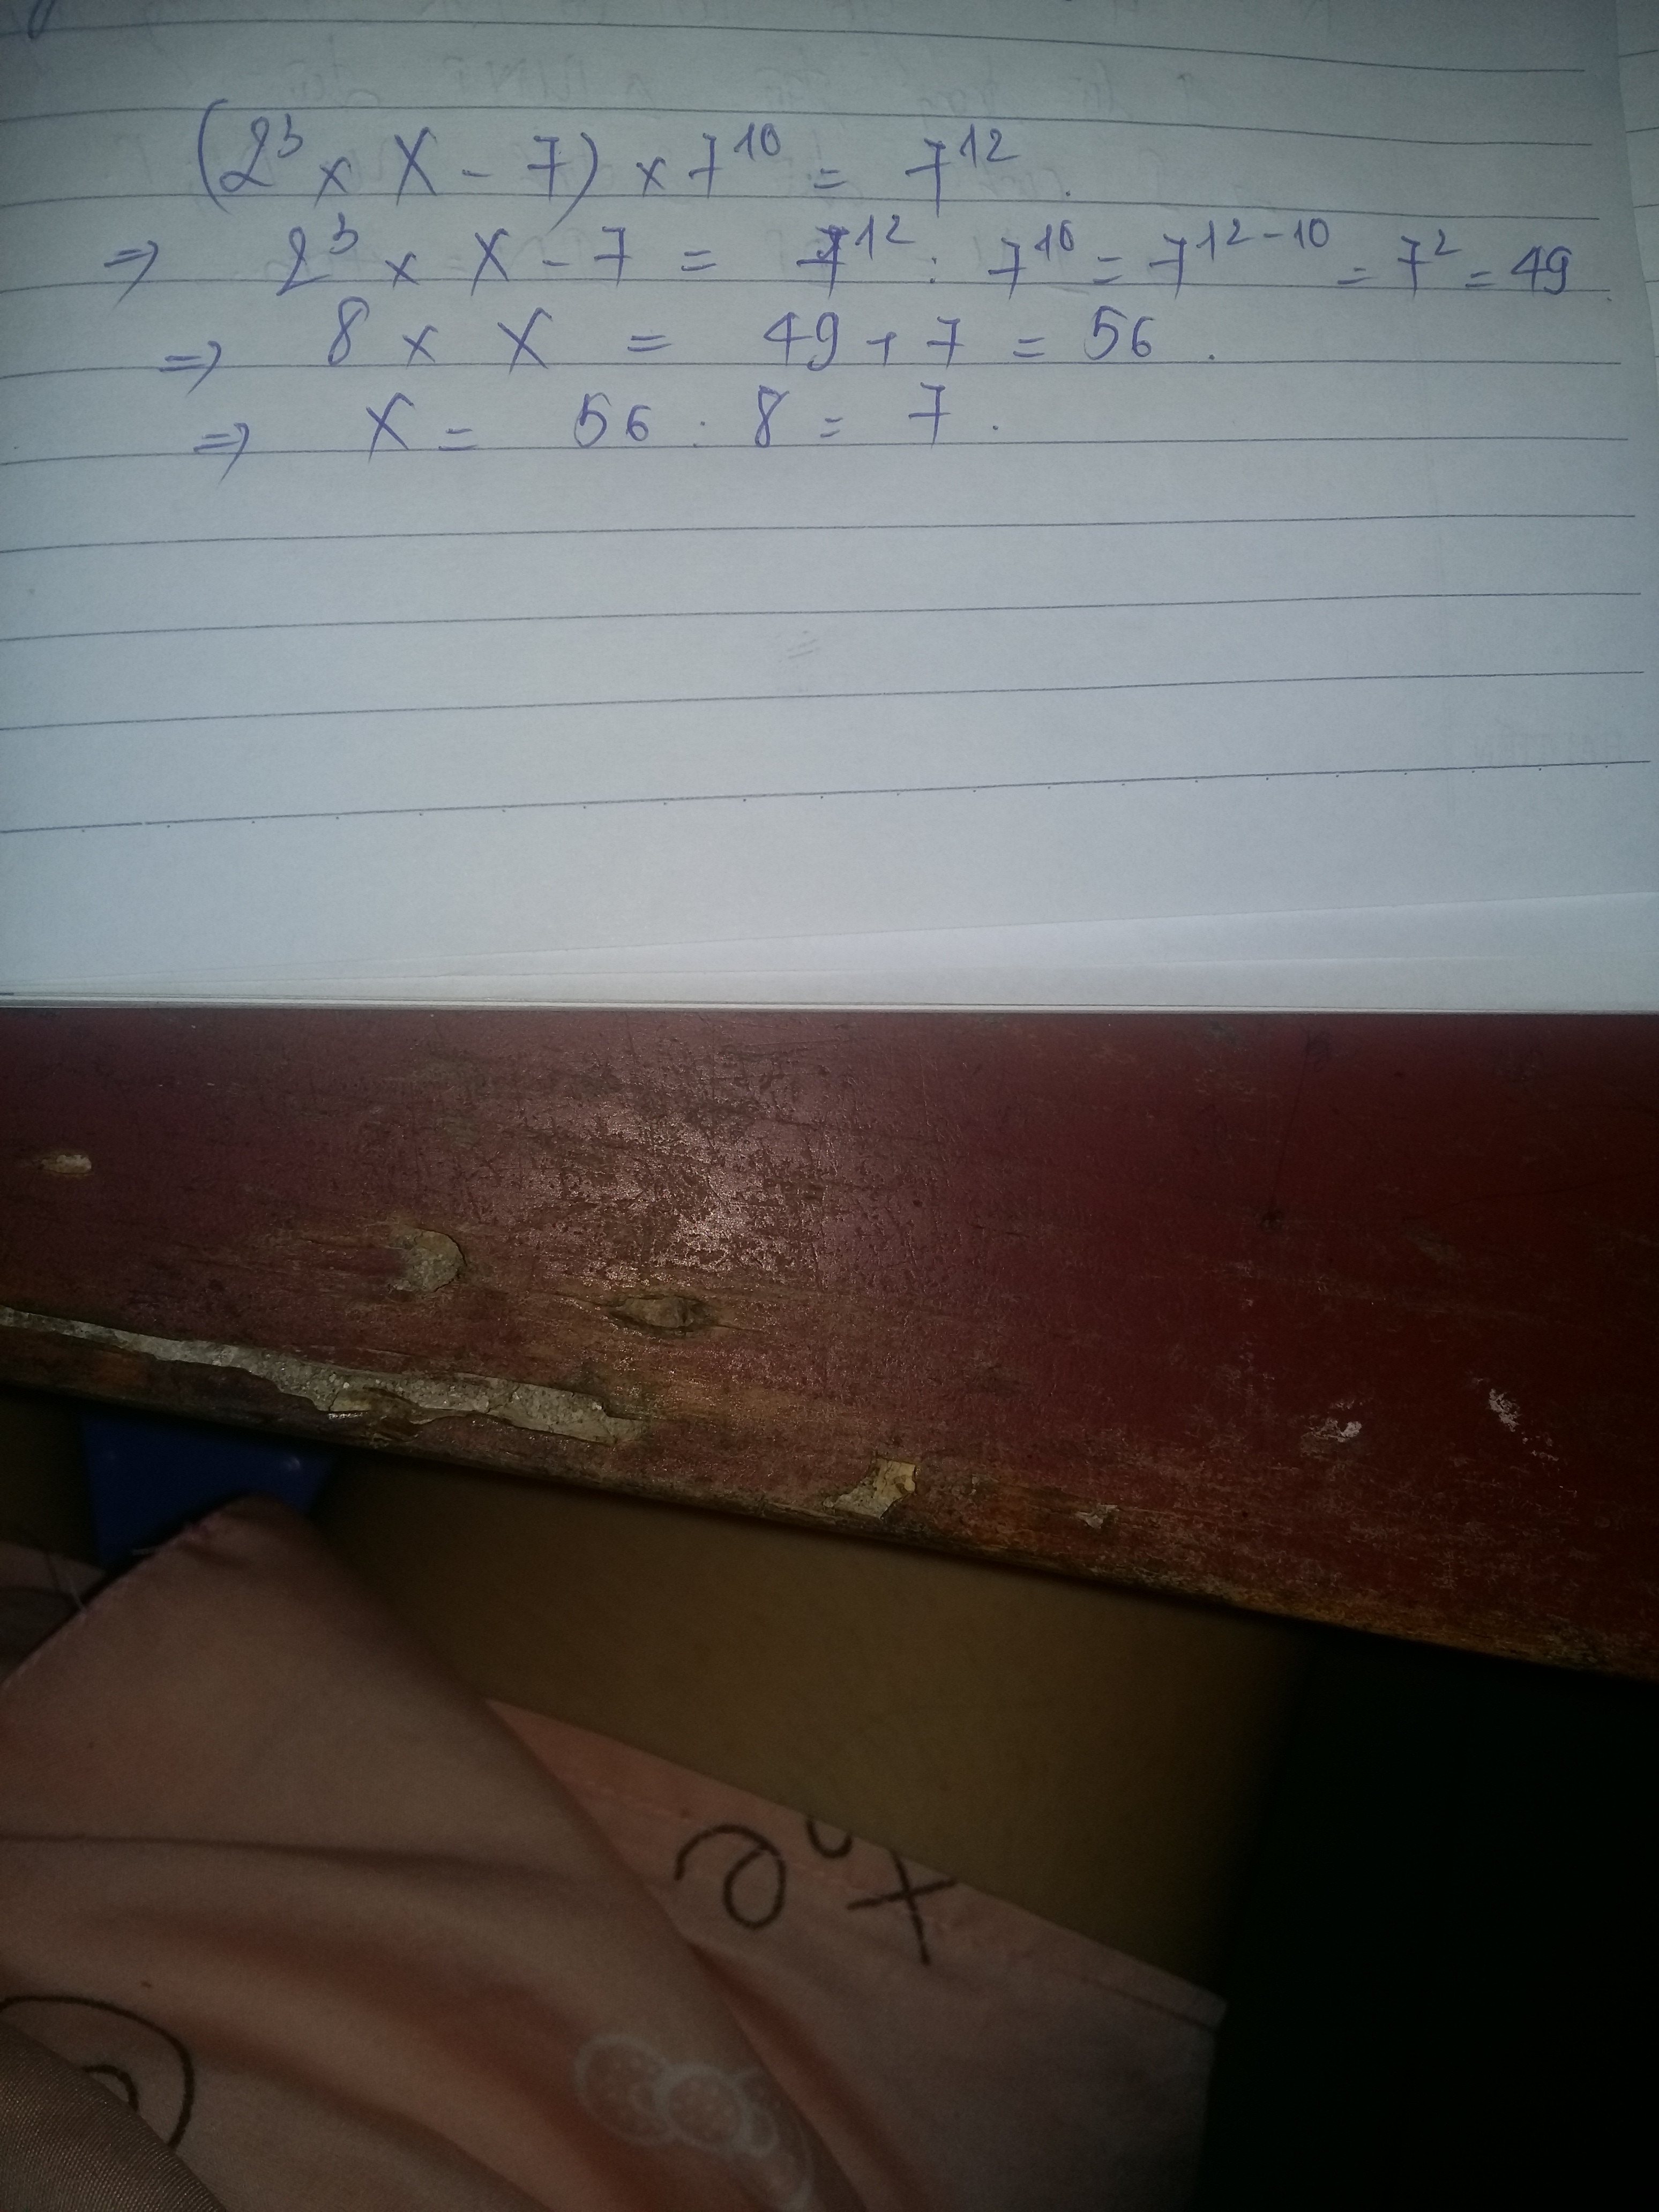 (2³ × X - 7) × 7¹⁰ = 7¹².
=> 2³ × X - 7 = 7¹² : 7¹⁰ = 7¹²⁻¹⁰ = 7² = 49.
=> 8 × X = 49 + 7 = 56.
=> X = 56 : 8 = 7.